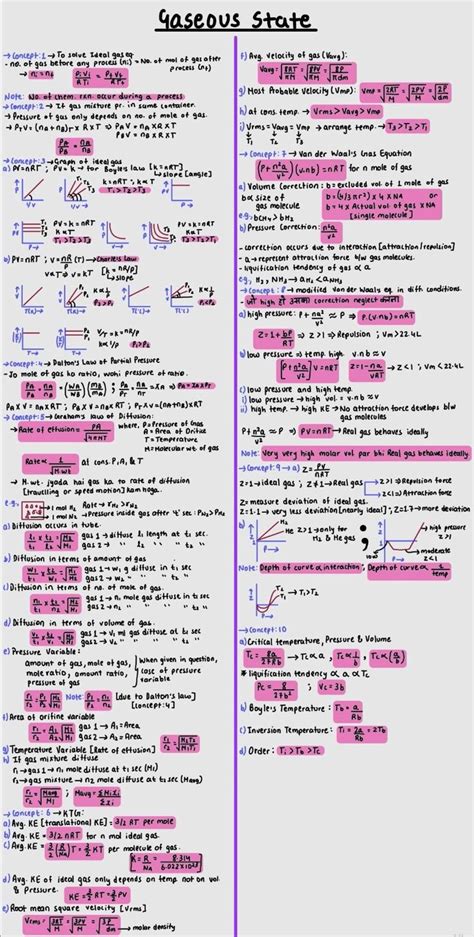 Gaseous State
→ Concept: 1 → To solve Ideal gas eq.
- no. of gas before any process (ni) = No. of mol of gas after process (nf)
→ ni = nf PiVi/RTi = PfVf/RTf
Note: No. of chem. rxn. occur during a process
→ Concept: 2 → If gas mixture pr. in same container.
→ Pressure of gas only depends on no. of mole of gas.
→ PTV = (nA+nB)r x RXT ⇒ PAV = nA X RXT
PBV = nB X RXT
PA/PB = nA/nB
→ Concept: 3 → Graph of ideal gas
a) PV = nRT ; PV = k → for Boyle's law [k = nRT]
slope [angle]
k = nRT ; k ∝ T
T3 > T2 > T1
PV = k = nRT
k ∝ T
T1 > T2 > T3
PV = k = nRT
k ∝ T
T3 > T2 > T1
b) PV = nRT ; V = nR/P (T) → Charle's law
V ∝ T ⇒ V = kT [k = nR/P]
slope
V/T = k = nR/P
k ∝ 1/P
P1 > P2
→ Concept: 4 → Dalton's Law of Partial Pressure
- Jo mole ka ratio, wohi pressure ka ratio.
PA/PB = nA/nB = (WA/WB) (MB/MA) ; PA/PT = nA/nT = XA ⇒ PA = XA x PT
PA X V = nA X RT ; PB X V = nB X RT ; PTV = (nA+nB) RT
→ Concept: 5 → Graham's law of Diffusion:
→ Rate of effusion = PA/√(2πMRT) where, P = Pressure of Gas
A = Area of Orifice
T = Temperature
M = Molecular wt of gas
Rate ∝ 1/√M.wt. at cons. P, A, & T
→ M. wt. jyada hai gas ka to rate of diffusion [travelling or speed motion] kam hoga.
e.g. 1 mol H2 Rate → rH2 > rN2
1 mol N2 Pressure inside gas after 't' sec : PN2 > PH2
a) Diffusion occurs in tube.
l1/t1 x t2/l2 = √(M2/M1) gas 1 → diffuse l1 length at t1 sec.
gas 2 → " l2 " " t2 "
b) Diffusion in terms of amount of gas
gas 1 → w1 g diffuse in t1 sec
gas 2 → w2 " " " t2 "
c) Diffusion in terms of no. of mole of gas.
n1/t1 x t2/n2 = √(M2/M1) gas 1 → n1 mole gas diffuse in t1 sec
gas 2 → n2 " " " " t2 "
d) Diffusion in terms of volume of gas.
gas 1 → V1 ml gas diffuse in t1 sec
gas 2 → V2 " " " " t2 "
e) Pressure Variable:
amount of gas, mole of gas, mole ratio, amount ratio, pressure of gas
When given in question, case of pressure variable
r1/r2 = P1/P2 √(M2/M1) Note: P1/P2 = n1/n2 [due to Dalton's law] [concept: 4]
f) Area of orifine variable
r1/r2 = A1/A2 √(M2/M1) gas 1 → A1 = Area
gas 2 → A2 = Area
g) Temperature Variable [Rate of effusion]
h) If gas mixture diffuse
r1 → gas 1 → n1 mole diffuse at t1 sec (M1)
r2 → gas mixture → n2 mole diffuse at t2 sec (Mavg)
r1/r2 = √(Mavg/M1) ; Mavg = ΣMixi/Σxi
→ Concept: 6 → KTG:
a) Avg. KE [translational KE] = 3/2 RT per mole
b) Avg. KE = 3/2 nRT for n mol ideal gas.
c) Avg. KE = 3/2 (R/NA) T = 3/2 KT per molecule of gas.
K = R/NA = 8.314/6.022x10²³
d) Avg. KE of ideal gas only depends on temp not on vol. & Pressure.
KE = 3/2 RT = 3/2 PV
e) Root mean square velocity [Vrms]
Vrms = √(3RT/M) = √(3PV/M) = √(3P/d) → molar density
f) Avg. velocity of gas (Vavg):
Vavg = √(8RT/πM) = √(8PV/πM) = √(8P/πdm)
g) Most Probable Velocity (Vmp): Vmp = √(2RT/M) = √(2PV/M) = √(2P/dm)
h) at cons. temp. → Vrms > Vavg > Vmp
i) Vrms = Vavg = Vmp → arrange temp. → T3 > T2 > T1
→ Concept: 7 → Van der Waal's Gas Equation
(P + n²a/V²) (V-nb) = nRT for n mole of gas
a) Volume Correction: b = excluded vol of 1 mole of gas
b ∝ size of gas molecule
b = (4/3 πr³) x 4 x NA or
b = 4 x Actual vol of gas x NA
[single molecule]
e.g: bCH4 > bH2
b) Pressure Correction: n²a/V²
- correction occurs due to interaction [attraction/repulsion]
- a → represent attraction force b/w gas molecules.
- liquification tendency of gas ∝ a
e.g., H2, NH3 → aH2 < aNH3
→ Concept: 8 → modified Van der Waals eq. in diff conditions.
- जो high हो उसका correction neglect करना
a) high pressure: P + n²a/V² ≈ P ⇒ P(V-nb) = nRT
Z = 1 + bP/RT ⇒ Z > 1 ⇒ Repulsion ; Vm > 22.4L
b) low pressure ⇒ temp. high V-nb ≈ V
[P + n²a/V²] V = nRT Z = 1 - na/VRT ⇒ Z < 1 ; Vm < 22.4L
c) low pressure and high temp.
i) low pressure → high vol. = V-nb ≈ V
ii) high temp. → high KE → No attraction force develops b/w gas molecules
P + n²a/V² ≈ P ⇒ PV = nRT Real gas behaves ideally
Note: Very very high molar vol par bhi Real gas behaves ideally.
→ Concept: 9 → a) Z = PV/nRT
Z = 1 → ideal gas ; Z ≠ 1 → Real gas
Z > 1 ⇒ Repulsion force
Z < 1 ⇒ Attraction force
Z = measure deviation of ideal gas.
Z = 1.1 → very less deviation [nearly ideal] ; Z = 1.7 → more deviation
b) H2
He Z > 1 → only for H2 & He gas
high pressure Z > 1
moderate Z < 1
Note: Depth of curve ∝ interaction ; Depth of curve ∝ 1/temp
T2 T1 → T1 > T2
→ Concept: 10
a) Critical temperature, Pressure & Volume
Tc = 8a/27Rb → Tc ∝ a , Tc ∝ 1/b , Tc ∝ (a/b)
* liquification tendency ∝ a ∝ Tc
Pc = a/27b² ; Vc = 3b
b) Boyle's Temperature : Tb = a/Rb
c) Inversion Temperature: Ti = 2a/Rb = 2Tb
d) Order: Ti > Tb > Tc